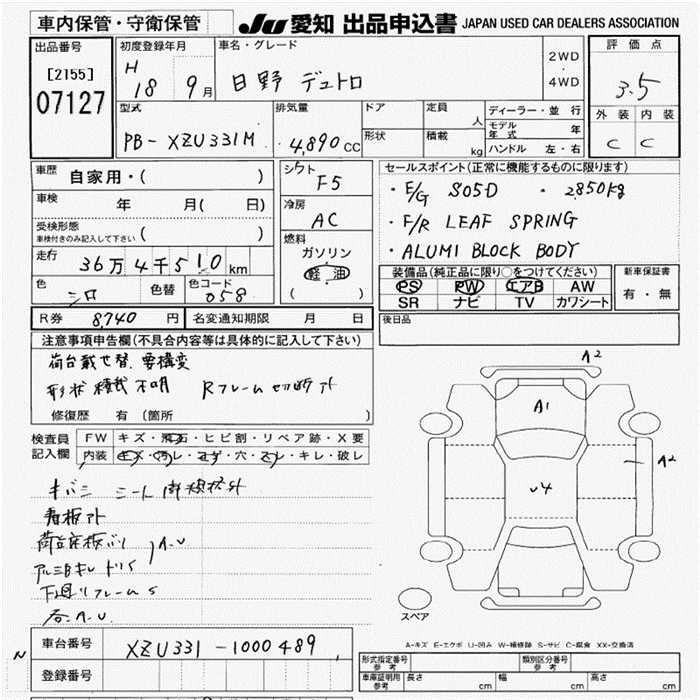 車内保管・守衛保管
JU 愛知 出品申込書 JAPAN USED CAR DEALERS ASSOCIATION
出品番号
[2155]
07127
初度登録年月
H
18 9月
車名・グレード
日野 デュトロ
2WD
・
4WD
評価点
3.5
外装 内装
C C
型式
PB-XZU331M
排気量
4,890CC
ドア
形状
定員
人
積載
kg
ディーラー・並行
モデル年式 年
ハンドル 左・右
車歴
自家用・( )
車検
年 月( 日)
受検形態
車検付きのみ記入して下さい ( )
走行
36万4千510km
色
シロ
色替
色コード
058
シフト
F5
冷房
AC
燃料
ガソリン
軽油
( )
セールスポイント(正常に機能するものに限ります)
・E/G S05D ・2850kg
・F/R LEAF SPRING
・ALUMI BLOCK BODY
装備品(純正品に限り○をつけてください)
PS PW エアB AW
SR ナビ TV カワシート
新車保証書
有・無
R券 8,740 円
名変通知期限 月 日
後日品
注意事項申告欄(不具合内容等は具体的に記入して下さい)
荷台載せ替 要構変
形状 積載 不明 Rフレーム切断アト
修復歴 有 (箇所 )
検査員
記入欄
FW キズ・飛石・ヒビ割・リペア跡・X要
内装 キズ・汚レ・コゲ・穴・スレ・キレ・破レ
キバミ シート
看板アト
下回リフレームS
A2
A1
A2
U4
スペア
A-キズ E-エクボ U-凹み W-補修跡 S-サビ C-腐食 XX-交換済
N
車台番号
XZU331-1000489
登録番号
形式指定番号
参考
類別区分番号
参考
車庫証明用
参考
長さ cm
幅 cm
高さ cm